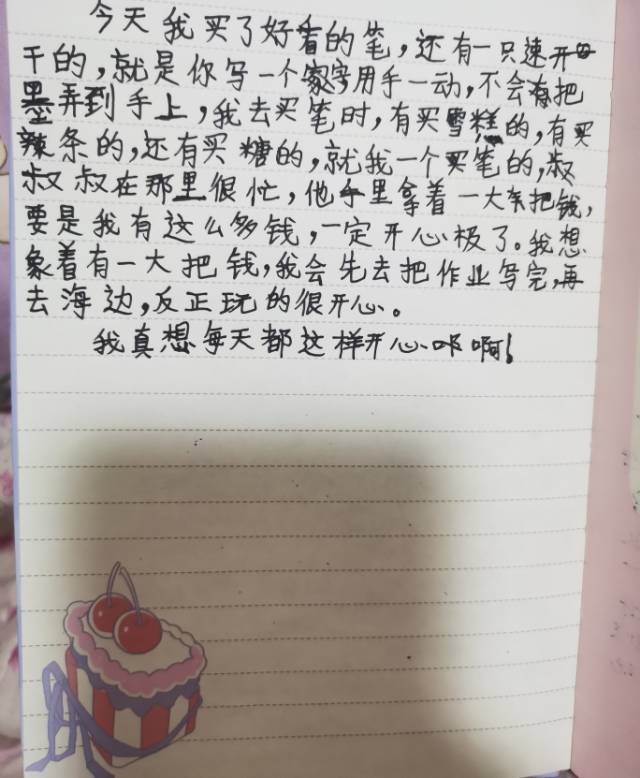 今天我买了好看的笔，还有一只速开
干的，就是你写一个字用手一动，不会有把
墨弄到手上，我去买笔时，有买雪糕的，有买
辣条的，还有买糖的，就我一个买笔的，叔
叔叔在那里很忙，他手里拿着一大把钱，
要是我有这么多钱，一定开心极了。我想
象着有一大把钱，我会先去把作业写完，再
去海边，反正玩的很开心。
我真想每天都这样开心啊！